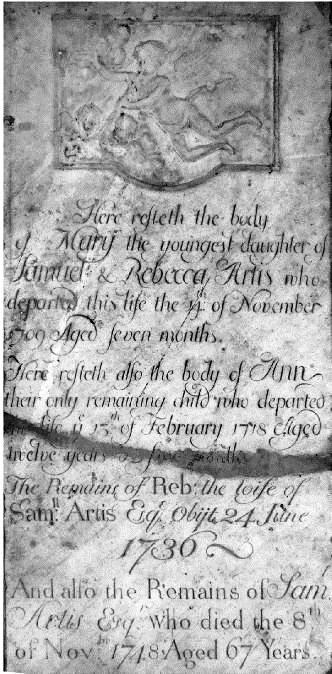 Here resteth the body
of Mary the youngest daughter of
Samuel & Rebecca Artis who
departed this life the 14th of November
1709 Aged seven months.
Here resteth also the body of Ann
their only remaining child who departed
this life ye 13th of February 1718 Aged
twelve years & five months
The Remains of Reb: the wife of
Samll Artis Esqr Obijt 24 June
1736
And also the Remains of Saml
Artis Esqr who died the 8th
of Novbr 1748: Aged 67 Years.